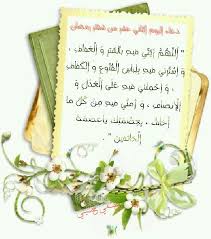 دعاء اليوم الثاني عشر من شهر رمضان
" اللهم زيني فيه بالستر و العفاف ,
و استرني فيه بلباس القنوع و الكفاف
و احملني فيه على العدل و
الإنصاف , و آمني فيه من كل ما
أخاف , بعصمتك يا عصمة
الخائفين "